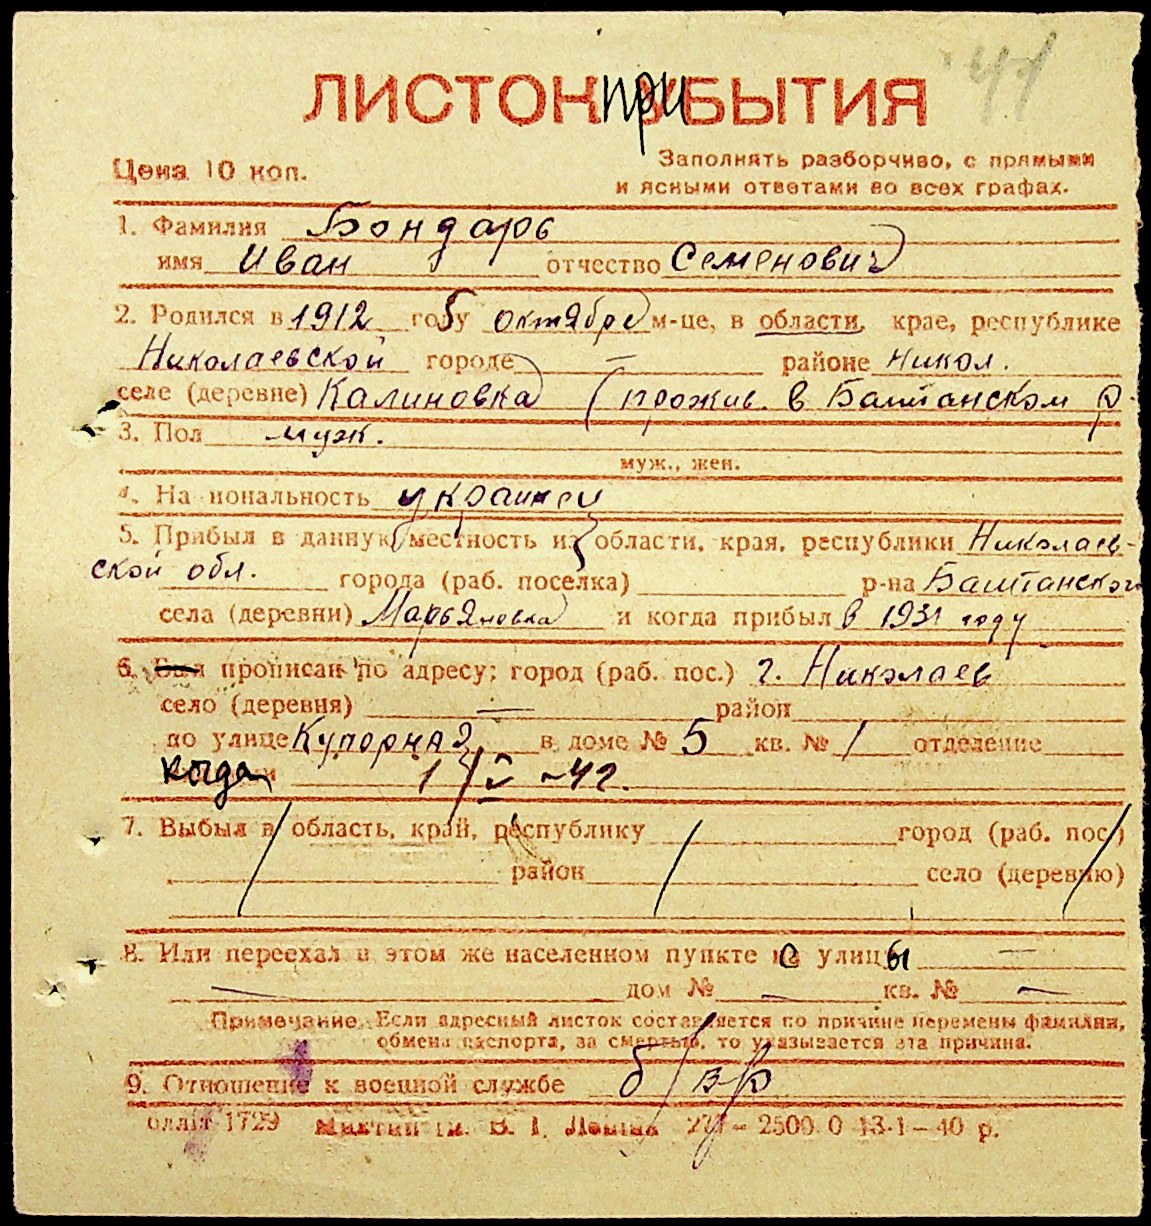 41
ЛИСТОК ПРИБЫТИЯ
Цена 10 коп.
Заполнять разборчиво, с прямыми
и ясными ответами во всех графах.
1. Фамилия Бондарь
имя Иван отчество Семенович
2. Родился в 1912 году 5 октябре м-це, в области, крае, республике
Николаевской городе — районе Никол.
селе (деревне) Калиновка (прожив. в Баштанском р.
3. Пол муж.
муж., жен.
4. На иональность украинец
5. Прибыл в данную местность из области, края, республики Николаев-
ской обл. города (раб. поселка) р-на Баштанского
села (деревни) Марьяновка и когда прибыл в 1931 году
6. Был прописан по адресу; город (раб. пос.) г. Николаев
село (деревня) — район
по улице Купорная в доме № 5 кв. № 1 отделение
когда 1/V-42.
7. Выбыл в область, край, республику город (раб. пос.)
район село (деревню)
8. Или переехал в этом же населенном пункте с улицы —
— дом № — кв. № —
Примечание. Если адресный листок составляется по причине перемены фамилии,
обмена паспорта, за смертью, то указывается эта причина.
9. Отношение к военной службе б/вр
1729 им. В. І. Леніна 277 — 2500.0 13-1—40 р.